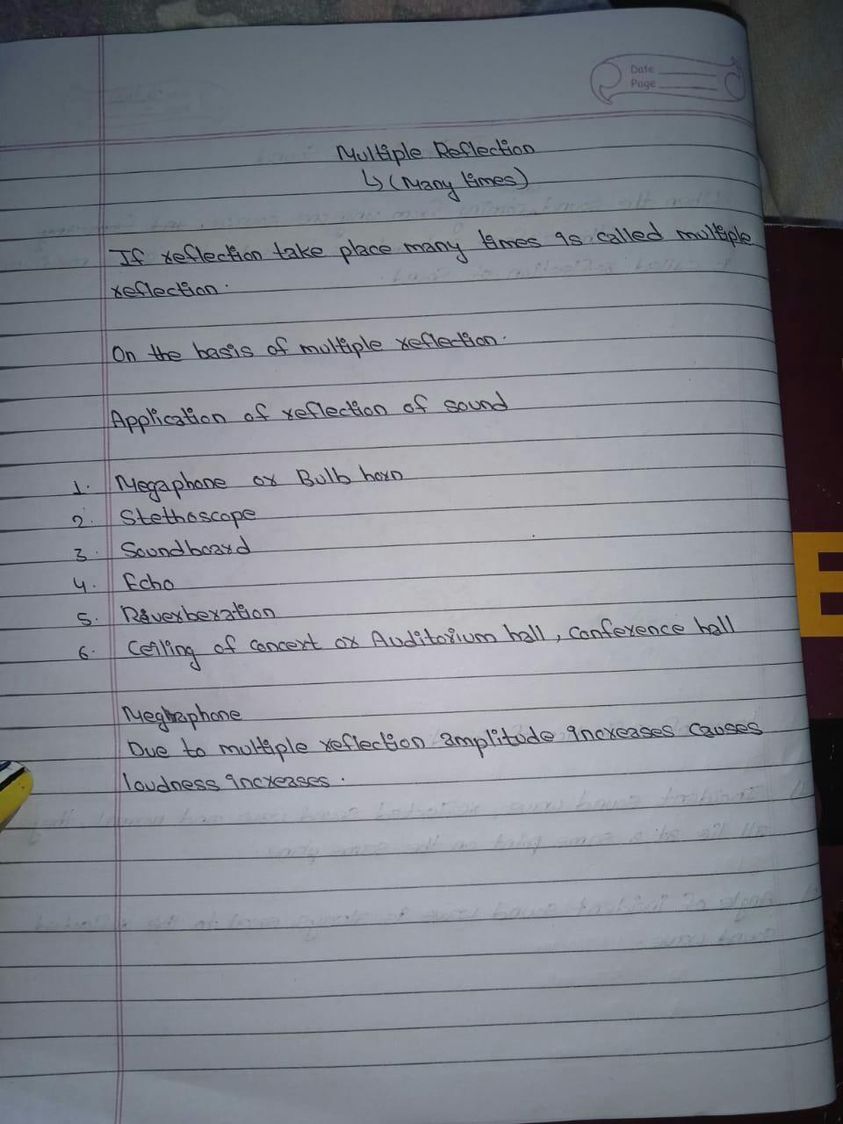 Date
Page
Multiple Reflection
↳ (Many times)
If reflection take place many times is called multiple
reflection.
On the basis of multiple reflection.
Application of reflection of sound
1. Megaphone or Bulb horn
2. Stethoscope
3. Soundboard
4. Echo
5. Reverberation
6. Ceiling of concert or Auditorium hall, Conference hall
Megaphone
Due to multiple reflection amplitude increases causes
loudness increases.
E